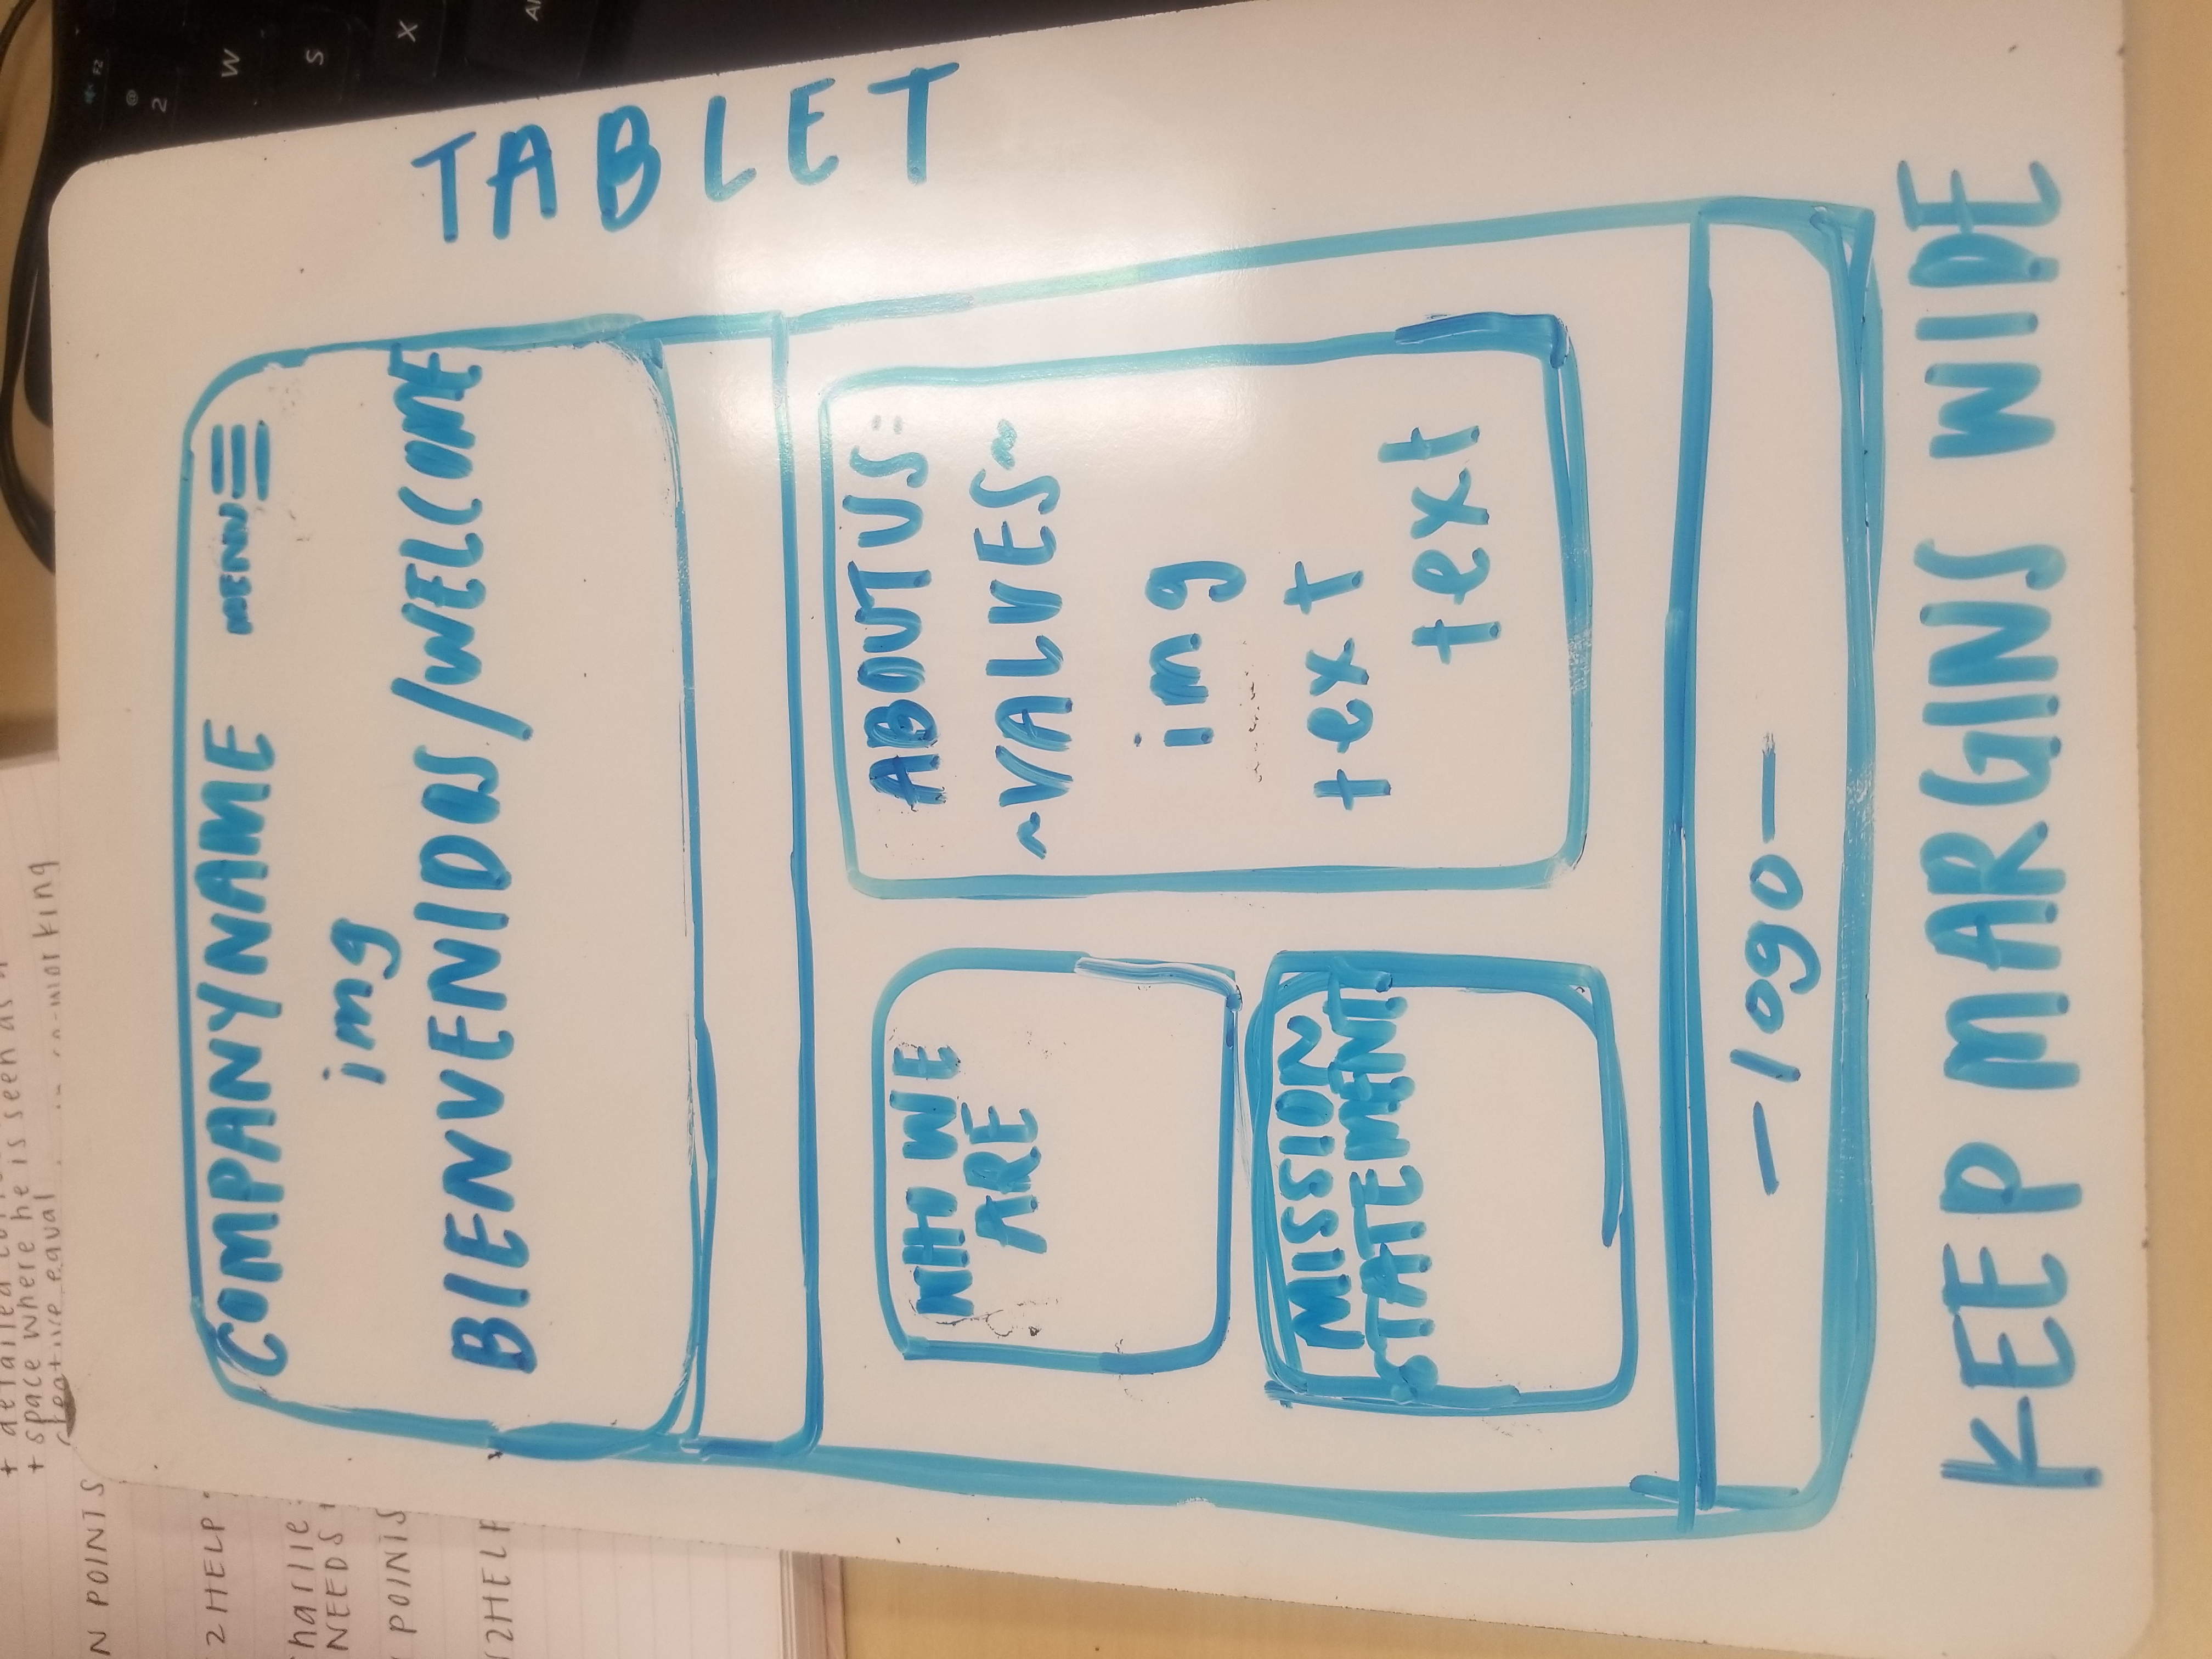 + space where he is seen as a
creative equal
co-working
N POINTS
2HELP
harlie
NEEDS
POINTS
2HELP
COMPANYNAME
MENU
img
BIENVENIDOS/WELCOME
WHO WE
ARE
MISSION
STATEMENT
ABOUT US
~VALUES~
img
text
text
-logo-
TABLET
KEEP MARGINS WIDE
F2
@
2
W
S
X